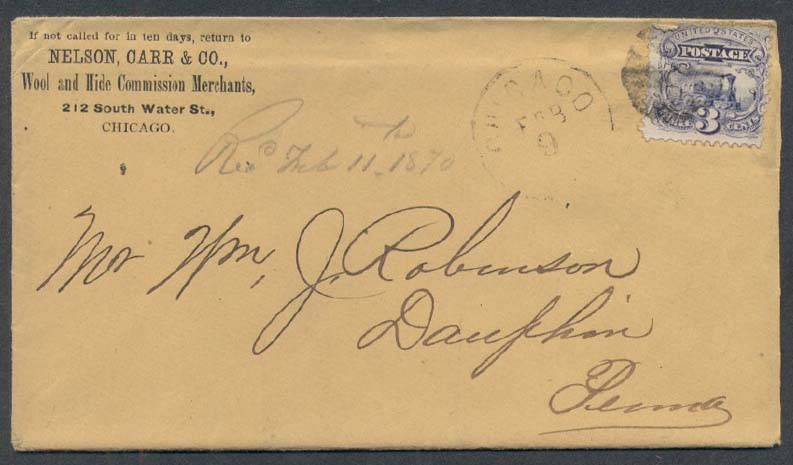 If not called for in ten days, return to
NELSON, CARR & CO.,
Wool and Hide Commission Merchants,
212 South Water St.,
CHICAGO.
UNITED STATES
POSTAGE
3 CENTS
CHICAGO
FEB
9
Recd Feb 11th 1870
Mr Wm, J. Robinson
Dauphin
Penna